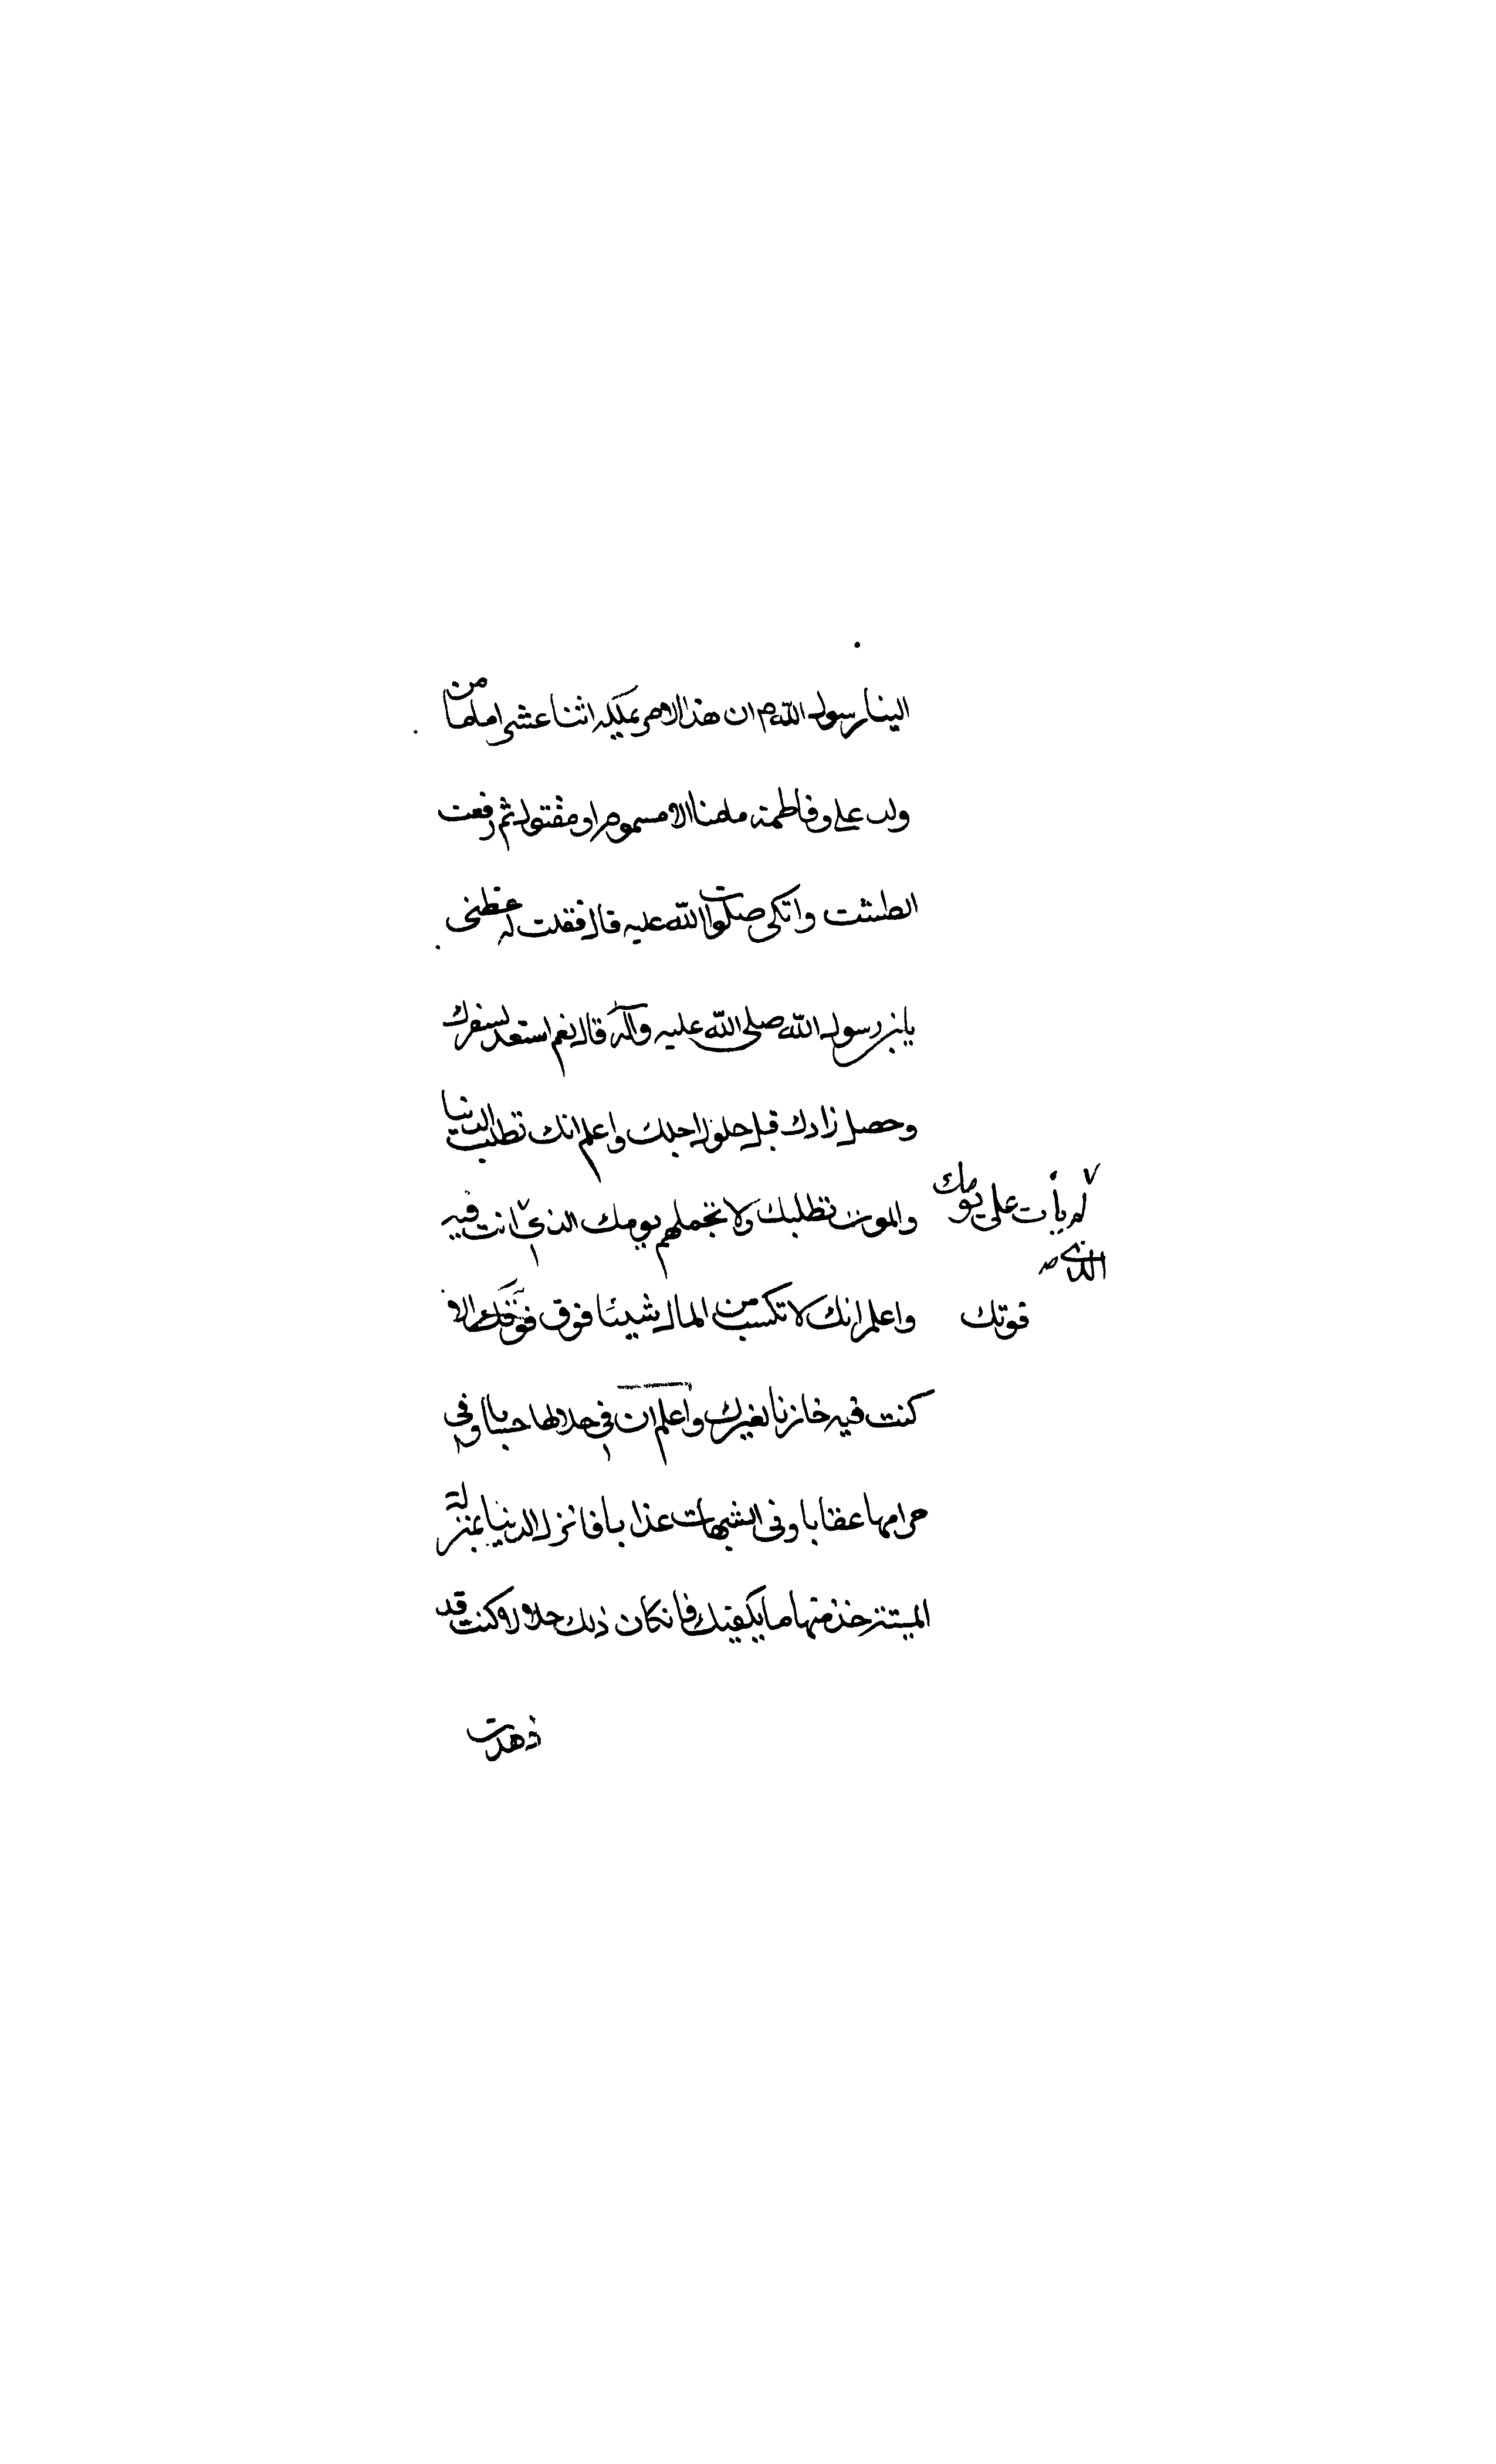 الينا رسول الله ص ان هذا الامر يملكه اثنا عشر اماما من
ولد علي وفاطمة ما منا الا مسموم او مقتول ثم رفعت
الطشت واتكى صلوات الله عليه قال فقلت له عظنى
يا بن رسول الله صلى الله عليه وآله قال نعم استعد لسفرك
وحصل زادك قبل حلول اجلك واعلم انك تطلب الدنيا
والموت تطلبك ولا تحمل هم يومك الذى انت فيه
لم يأت على يومك
الذى
واعلم انك لا تكسب من المال شيئا فوق قوتك الا
قوتك
كنت فيه خازنا لغيرك واعلم ان في حلالها حسابا وفي
حرامها عقابا وفى الشبهات عذابا فانزل الدنيا بمنزلة
الميتة خذ منها ما يكفيك فان كان ذلك حلالا كنت قد
زهدت